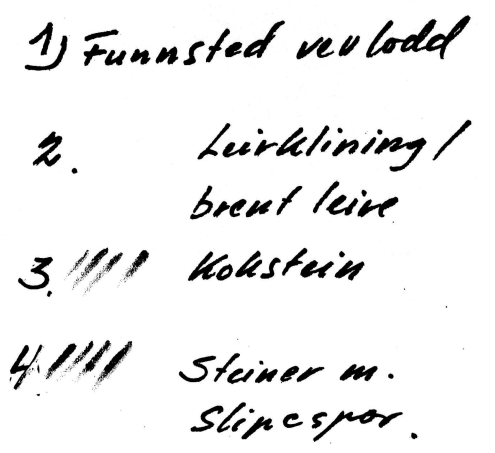 1) Funnsted vevlodd
2. Leirklining/
brent leire
3. Kokstein
4. Steiner m.
Slipespor.